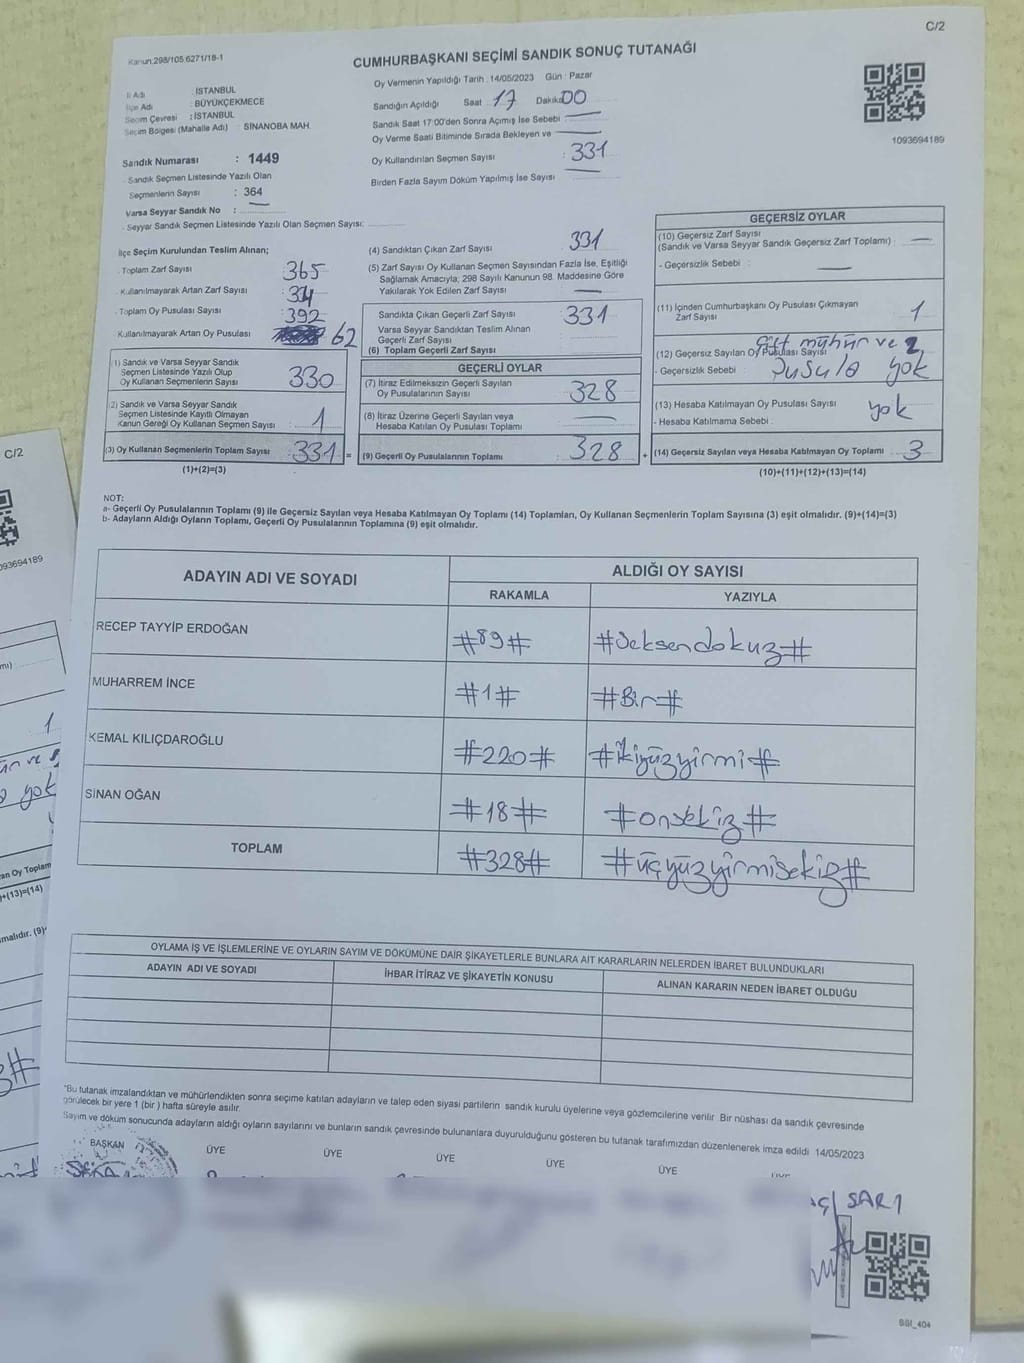 C/2
Kanun.298/105.6271/18-1
CUMHURBAŞKANI SEÇİMİ SANDIK SONUÇ TUTANAĞI
Oy Vermenin Yapıldığı Tarih : 14/05/2023 Gün : Pazar
İl Adı : İSTANBUL
İlçe Adı : BÜYÜKÇEKMECE
Seçim Çevresi : İSTANBUL
Seçim Bölgesi (Mahalle Adı) : SİNANOBA MAH.
Sandığın Açıldığı Saat : 17 Dakika 00
Sandık Saat 17:00'den Sonra Açımış İse Sebebi :
Oy Verme Saati Bitiminde Sırada Bekleyen ve
Oy Kullandırılan Seçmen Sayısı : 331
Birden Fazla Sayım Döküm Yapılmış İse Sayısı
1093694189
Sandık Numarası : 1449
Sandık Seçmen Listesinde Yazılı Olan
Seçmenlerin Sayısı : 364
Varsa Seyyar Sandık No :
Seyyar Sandık Seçmen Listesinde Yazılı Olan Seçmen Sayısı:
İlçe Seçim Kurulundan Teslim Alınan;
Toplam Zarf Sayısı : 365
Kullanılmayarak Artan Zarf Sayısı : 34
Toplam Oy Pusulası Sayısı : 392
Kullanılmayarak Artan Oy Pusulası 62
(1) Sandık ve Varsa Seyyar Sandık
Seçmen Listesinde Yazılı Olup
Oy Kullanan Seçmenlerin Sayısı : 330
(2) Sandık ve Varsa Seyyar Sandık
Seçmen Listesinde Kayıtlı Olmayan
Kanun Gereği Oy Kullanan Seçmen Sayısı : 1
(3) Oy Kullanan Seçmenlerin Toplam Sayısı : 331 =
(1)+(2)=(3)
(4) Sandıktan Çıkan Zarf Sayısı : 331
(5) Zarf Sayısı Oy Kullanan Seçmen Sayısından Fazla İse, Eşitliği
Sağlamak Amacıyla; 298 Sayılı Kanunun 98. Maddesine Göre
Yakılarak Yok Edilen Zarf Sayısı :
Sandıkta Çıkan Geçerli Zarf Sayısı : 331
Varsa Seyyar Sandıktan Teslim Alınan
Geçerli Zarf Sayısı
(6) Toplam Geçerli Zarf Sayısı
GEÇERLİ OYLAR
(7) İtiraz Edilmeksizin Geçerli Sayılan
Oy Pusulalarının Sayısı : 328
(8) İtiraz Üzerine Geçerli Sayılan veya
Hesaba Katılan Oy Pusulası Toplamı
(9) Geçerli Oy Pusulalarının Toplamı : 328 +
GEÇERSİZ OYLAR
(10) Geçersiz Zarf Sayısı
(Sandık ve Varsa Seyyar Sandık Geçersiz Zarf Toplamı) :
- Geçersizlik Sebebi :
(11) İçinden Cumhurbaşkanı Oy Pusulası Çıkmayan
Zarf Sayısı : 1
(12) Geçersiz Sayılan Oy Pusulası Sayısı : 2
- Geçersizlik Sebebi : Çift mühür ve Pusula yok
(13) Hesaba Katılmayan Oy Pusulası Sayısı : yok
- Hesaba Katılmama Sebebi :
(14) Geçersiz Sayılan veya Hesaba Katılmayan Oy Toplamı : 3
(10)+(11)+(12)+(13)=(14)
NOT:
a- Geçerli Oy Pusulalarının Toplamı (9) ile Geçersiz Sayılan veya Hesaba Katılmayan Oy Toplamı (14) Toplamları, Oy Kullanan Seçmenlerin Toplam Sayısına (3) eşit olmalıdır. (9)+(14)=(3)
b- Adayların Aldığı Oyların Toplamı, Geçerli Oy Pusulalarının Toplamına (9) eşit olmalıdır.
ADAYIN ADI VE SOYADI
ALDIĞI OY SAYISI
RAKAMLA YAZIYLA
RECEP TAYYİP ERDOĞAN #89# #Seksendokuz#
MUHARREM İNCE #1# #Bir#
KEMAL KILIÇDAROĞLU #220# #ikiyüzyirmi#
SİNAN OĞAN #18# #onsekiz#
TOPLAM #328# #üçyüzyirmisekiz#
OYLAMA İŞ VE İŞLEMLERİNE VE OYLARIN SAYIM VE DÖKÜMÜNE DAİR ŞİKAYETLERLE BUNLARA AİT KARARLARIN NELERDEN İBARET BULUNDUKLARI
ADAYIN ADI VE SOYADI İHBAR İTİRAZ VE ŞİKAYETİN KONUSU ALINAN KARARIN NEDEN İBARET OLDUĞU
"Bu tutanak imzalandıktan ve mühürlendikten sonra seçime katılan adayların ve talep eden siyasi partilerin sandık kurulu üyelerine veya gözlemcilerine verilir. Bir nüshası da sandık çevresinde
görülecek bir yere 1 (bir) hafta süreyle asılır.
Sayım ve döküm sonucunda adayların aldığı oyların sayılarını ve bunların sandık çevresinde bulunanlara duyurulduğunu gösteren bu tutanak tarafımızdan düzenlenerek imza edildi 14/05/2023
BAŞKAN ÜYE ÜYE ÜYE ÜYE ÜYE
SARI
SGI_404
C/2
093694189
1
yok
an Oy Toplam
+(13)=(14)
malıdır. (9)